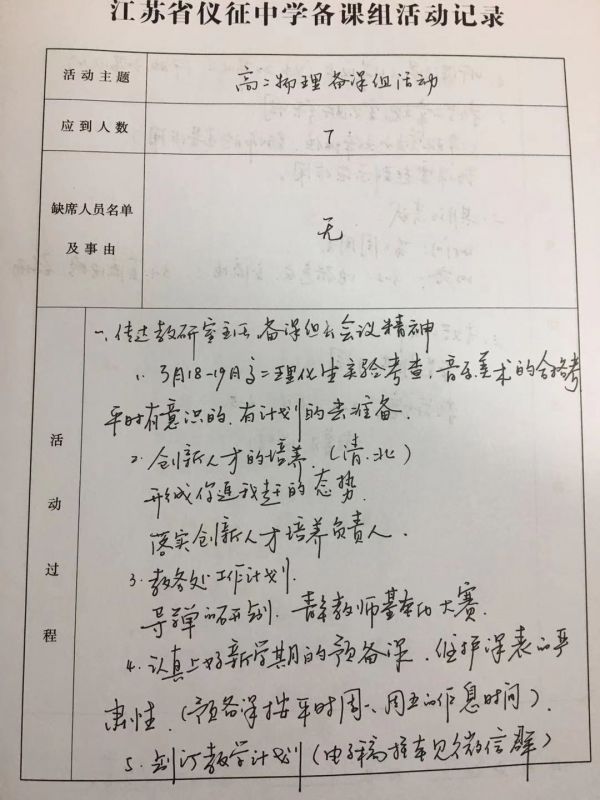 江苏省仪征中学备课组活动记录
活动主题
高二物理备课组活动
应到人数
7
缺席人员名单
及事由
无
活动过程
一、传达教研室主任、备课组长会议精神
1. 3月18-19月高二理化生实验考查、音乐美术的合格考
平时有意识的、有计划的去准备.
2. 创新人才的培养.(清.北)
形成你追我赶的态势.
落实创新人才培养负责人.
3. 教务处工作计划.
导学单的研制. 青年教师基本功大赛.
4. 认真上好新学期的预备课、维护课表的严
肃性.(预备课按平时周一、周五的作息时间).
5. 制订教学计划(电子稿挂率见微信群)